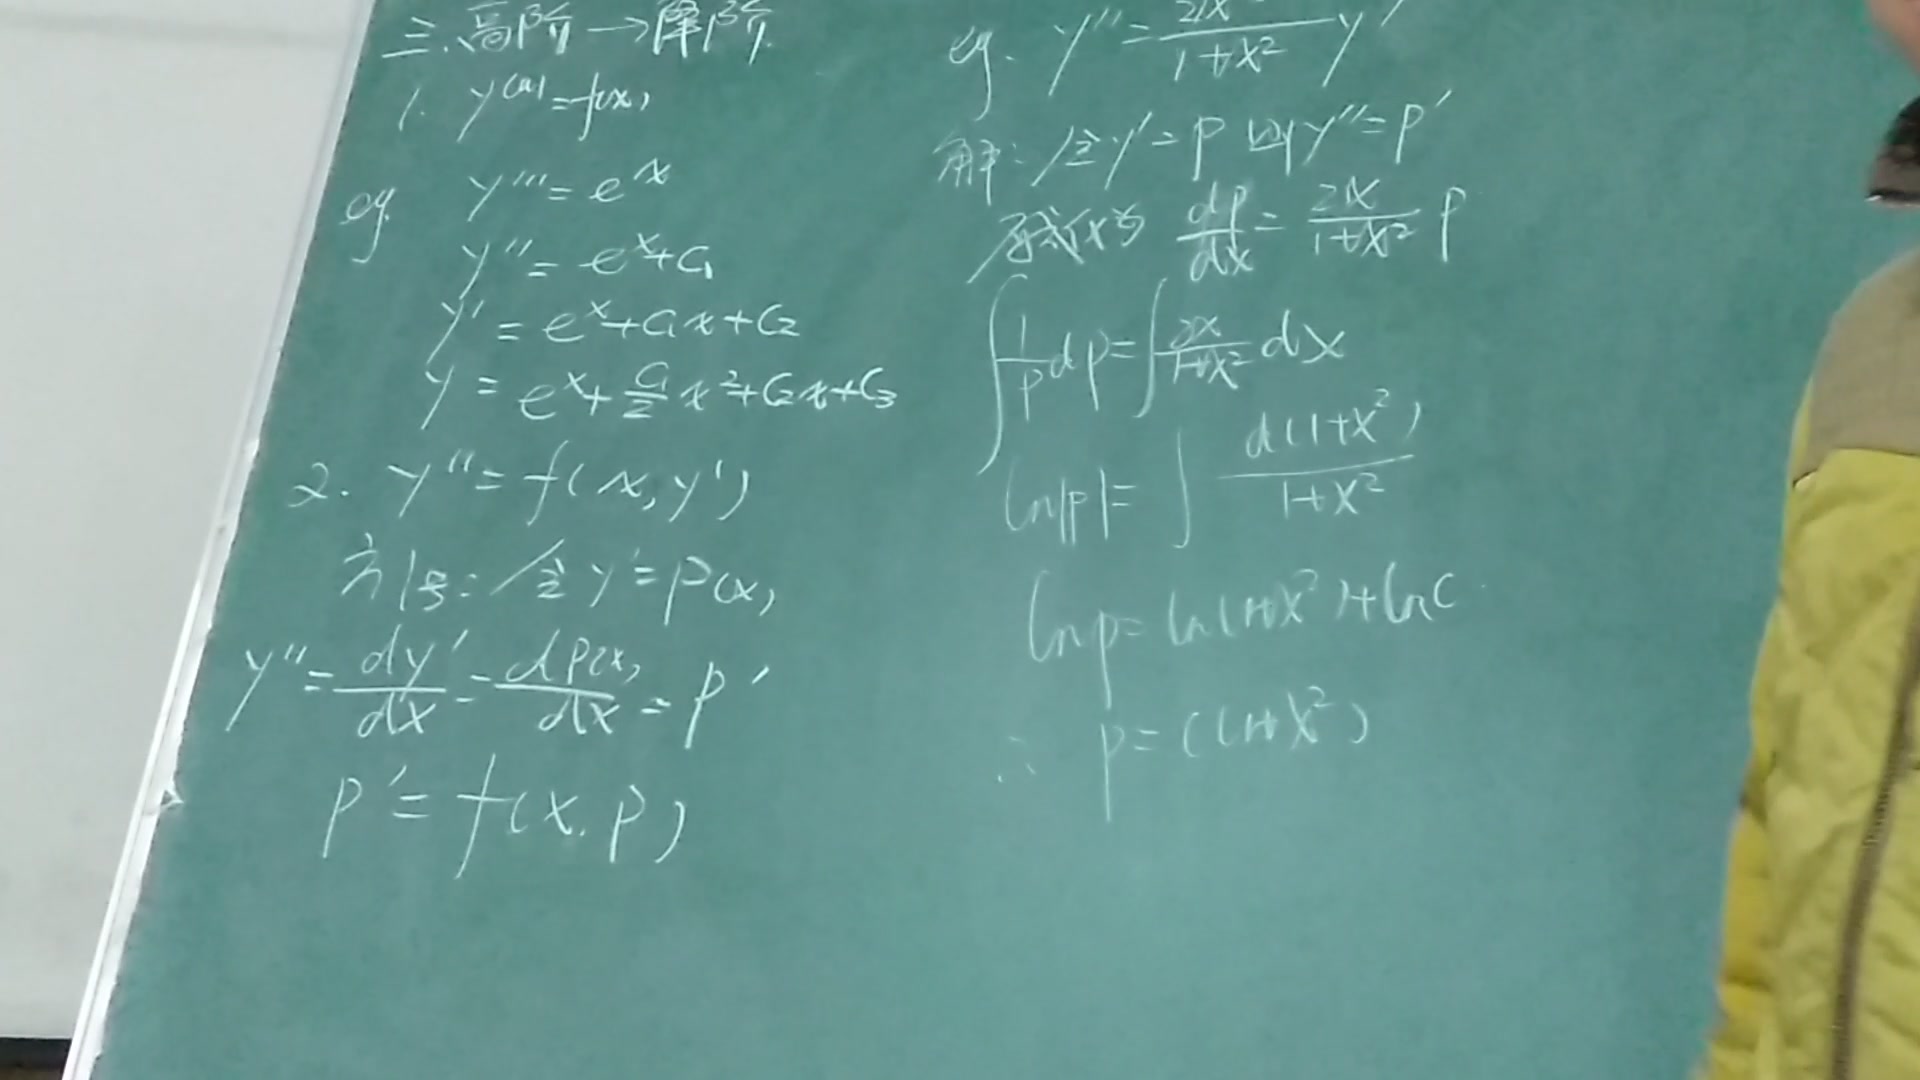 三.高阶→降阶
1. y⁽ⁿ⁾=f(x)
eg y'''=eˣ
y''=eˣ+C₁
y'=eˣ+C₁x+C₂
y=eˣ+C₁/2 x²+C₂x+C₃
2. y''=f(x,y')
方法:令y'=p(x)
y''=dy'/dx=dp(x)/dx=p'
p'=f(x,p)
eg. y''=2x/(1+x²) y'
解:令y'=p 则y''=p'
原式为 dp/dx=2x/(1+x²) p
∫1/p dp=∫2x/(1+x²) dx
ln|p|=∫d(1+x²)/(1+x²)
lnp=ln(1+x²)+lnC
∴ p=C(1+x²)